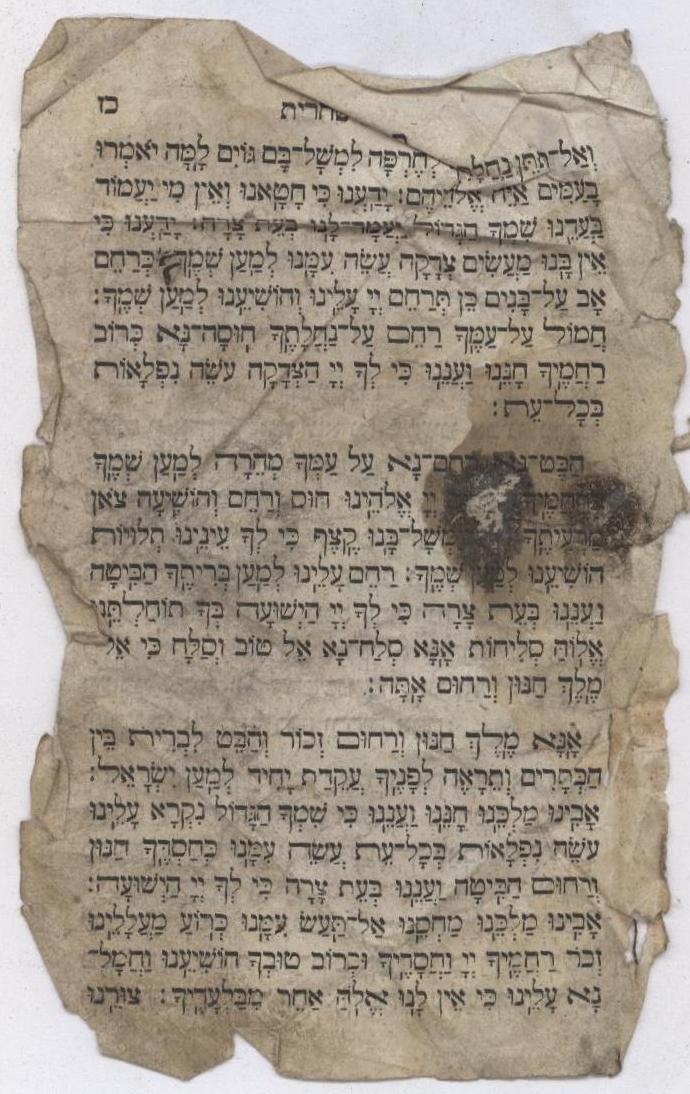 שחרית כז
וְאַל־תִּתֵּן נַחֲלָתְךָ לְחֶרְפָּה לִמְשָׁל־בָּם גּוֹיִם לָמָּה יֹאמְרוּ
בָעַמִּים אַיֵּה אֱלֹהֵיהֶם: יָדַעְנוּ כִּי חָטָאנוּ וְאֵין מִי יַעֲמוֹד
בַּעֲדֵנוּ שִׁמְךָ הַגָּדוֹל יַעֲמָד־לָנוּ בְּעֵת צָרָה: יָדַעְנוּ כִּי
אֵין בָּנוּ מַעֲשִׂים צְדָקָה עֲשֵׂה עִמָּנוּ לְמַעַן שְׁמֶךָ כְּרַחֵם
אָב עַל־בָּנִים כֵּן תְּרַחֵם יְיָ עָלֵינוּ וְהוֹשִׁיעֵנוּ לְמַעַן שְׁמֶךָ:
חֲמוֹל עַל־עַמֶּךָ רַחֵם עַל־נַחֲלָתֶךָ חוּסָה־נָּא כְּרוֹב
רַחֲמֶיךָ חָנֵּנוּ וַעֲנֵנוּ כִּי לְךָ יְיָ הַצְּדָקָה עֹשֵׂה נִפְלָאוֹת
בְּכָל־עֵת:
הַבֶּט־נָא רַחֶם־נָא עַל עַמְּךָ מְהֵרָה לְמַעַן שְׁמֶךָ
בְּרַחֲמֶיךָ יְיָ אֱלֹהֵינוּ חוּס וְרַחֵם וְהוֹשִׁיעָה צֹאן
מַרְעִיתֶךָ יִמְשָׁל־בָּנוּ קֶצֶף כִּי לְךָ עֵינֵינוּ תְלוּיוֹת
הוֹשִׁיעֵנוּ לְמַעַן שְׁמֶךָ: רַחֵם עָלֵינוּ לְמַעַן בְּרִיתֶךָ הַבִּיטָה
וַעֲנֵנוּ בְּעֵת צָרָה כִּי לְךָ יְיָ הַיְשׁוּעָה בְּךָ תוֹחַלְתֵּנוּ
אֱלוֹהַּ סְלִיחוֹת אָנָּא סְלַח־נָא אֵל טוֹב וְסַלָּח כִּי אֵל
מֶלֶךְ חַנּוּן וְרַחוּם אָתָּה:
אָנָּא מֶלֶךְ חַנּוּן וְרַחוּם זְכוֹר וְהַבֵּט לִבְרִית בֵּין
הַבְּתָרִים וְתֵרָאֶה לְפָנֶיךָ עֲקֵדַת יָחִיד לְמַעַן יִשְׂרָאֵל:
אָבִינוּ מַלְכֵּנוּ חָנֵּנוּ וַעֲנֵנוּ כִּי שִׁמְךָ הַגָּדוֹל נִקְרָא עָלֵינוּ
עֹשֵׂה נִפְלָאוֹת בְּכָל־עֵת עֲשֵׂה עִמָּנוּ כְּחַסְדֶּךָ חַנּוּן
וְרַחוּם הַבִּיטָה וַעֲנֵנוּ בְּעֵת צָרָה כִּי לְךָ יְיָ הַיְשׁוּעָה:
אָבִינוּ מַלְכֵּנוּ מַחְסֵנוּ אַל־תַּעַשׂ עִמָּנוּ כְּרוֹעַ מַעֲלָלֵינוּ
זְכֹר רַחֲמֶיךָ יְיָ וַחֲסָדֶיךָ וּכְרוֹב טוּבְךָ הוֹשִׁיעֵנוּ וַחֲמָל־
נָא עָלֵינוּ כִּי אֵין לָנוּ אֱלוֹהַּ אַחֵר מִבַּלְעָדֶיךָ: צוּרֵנוּ